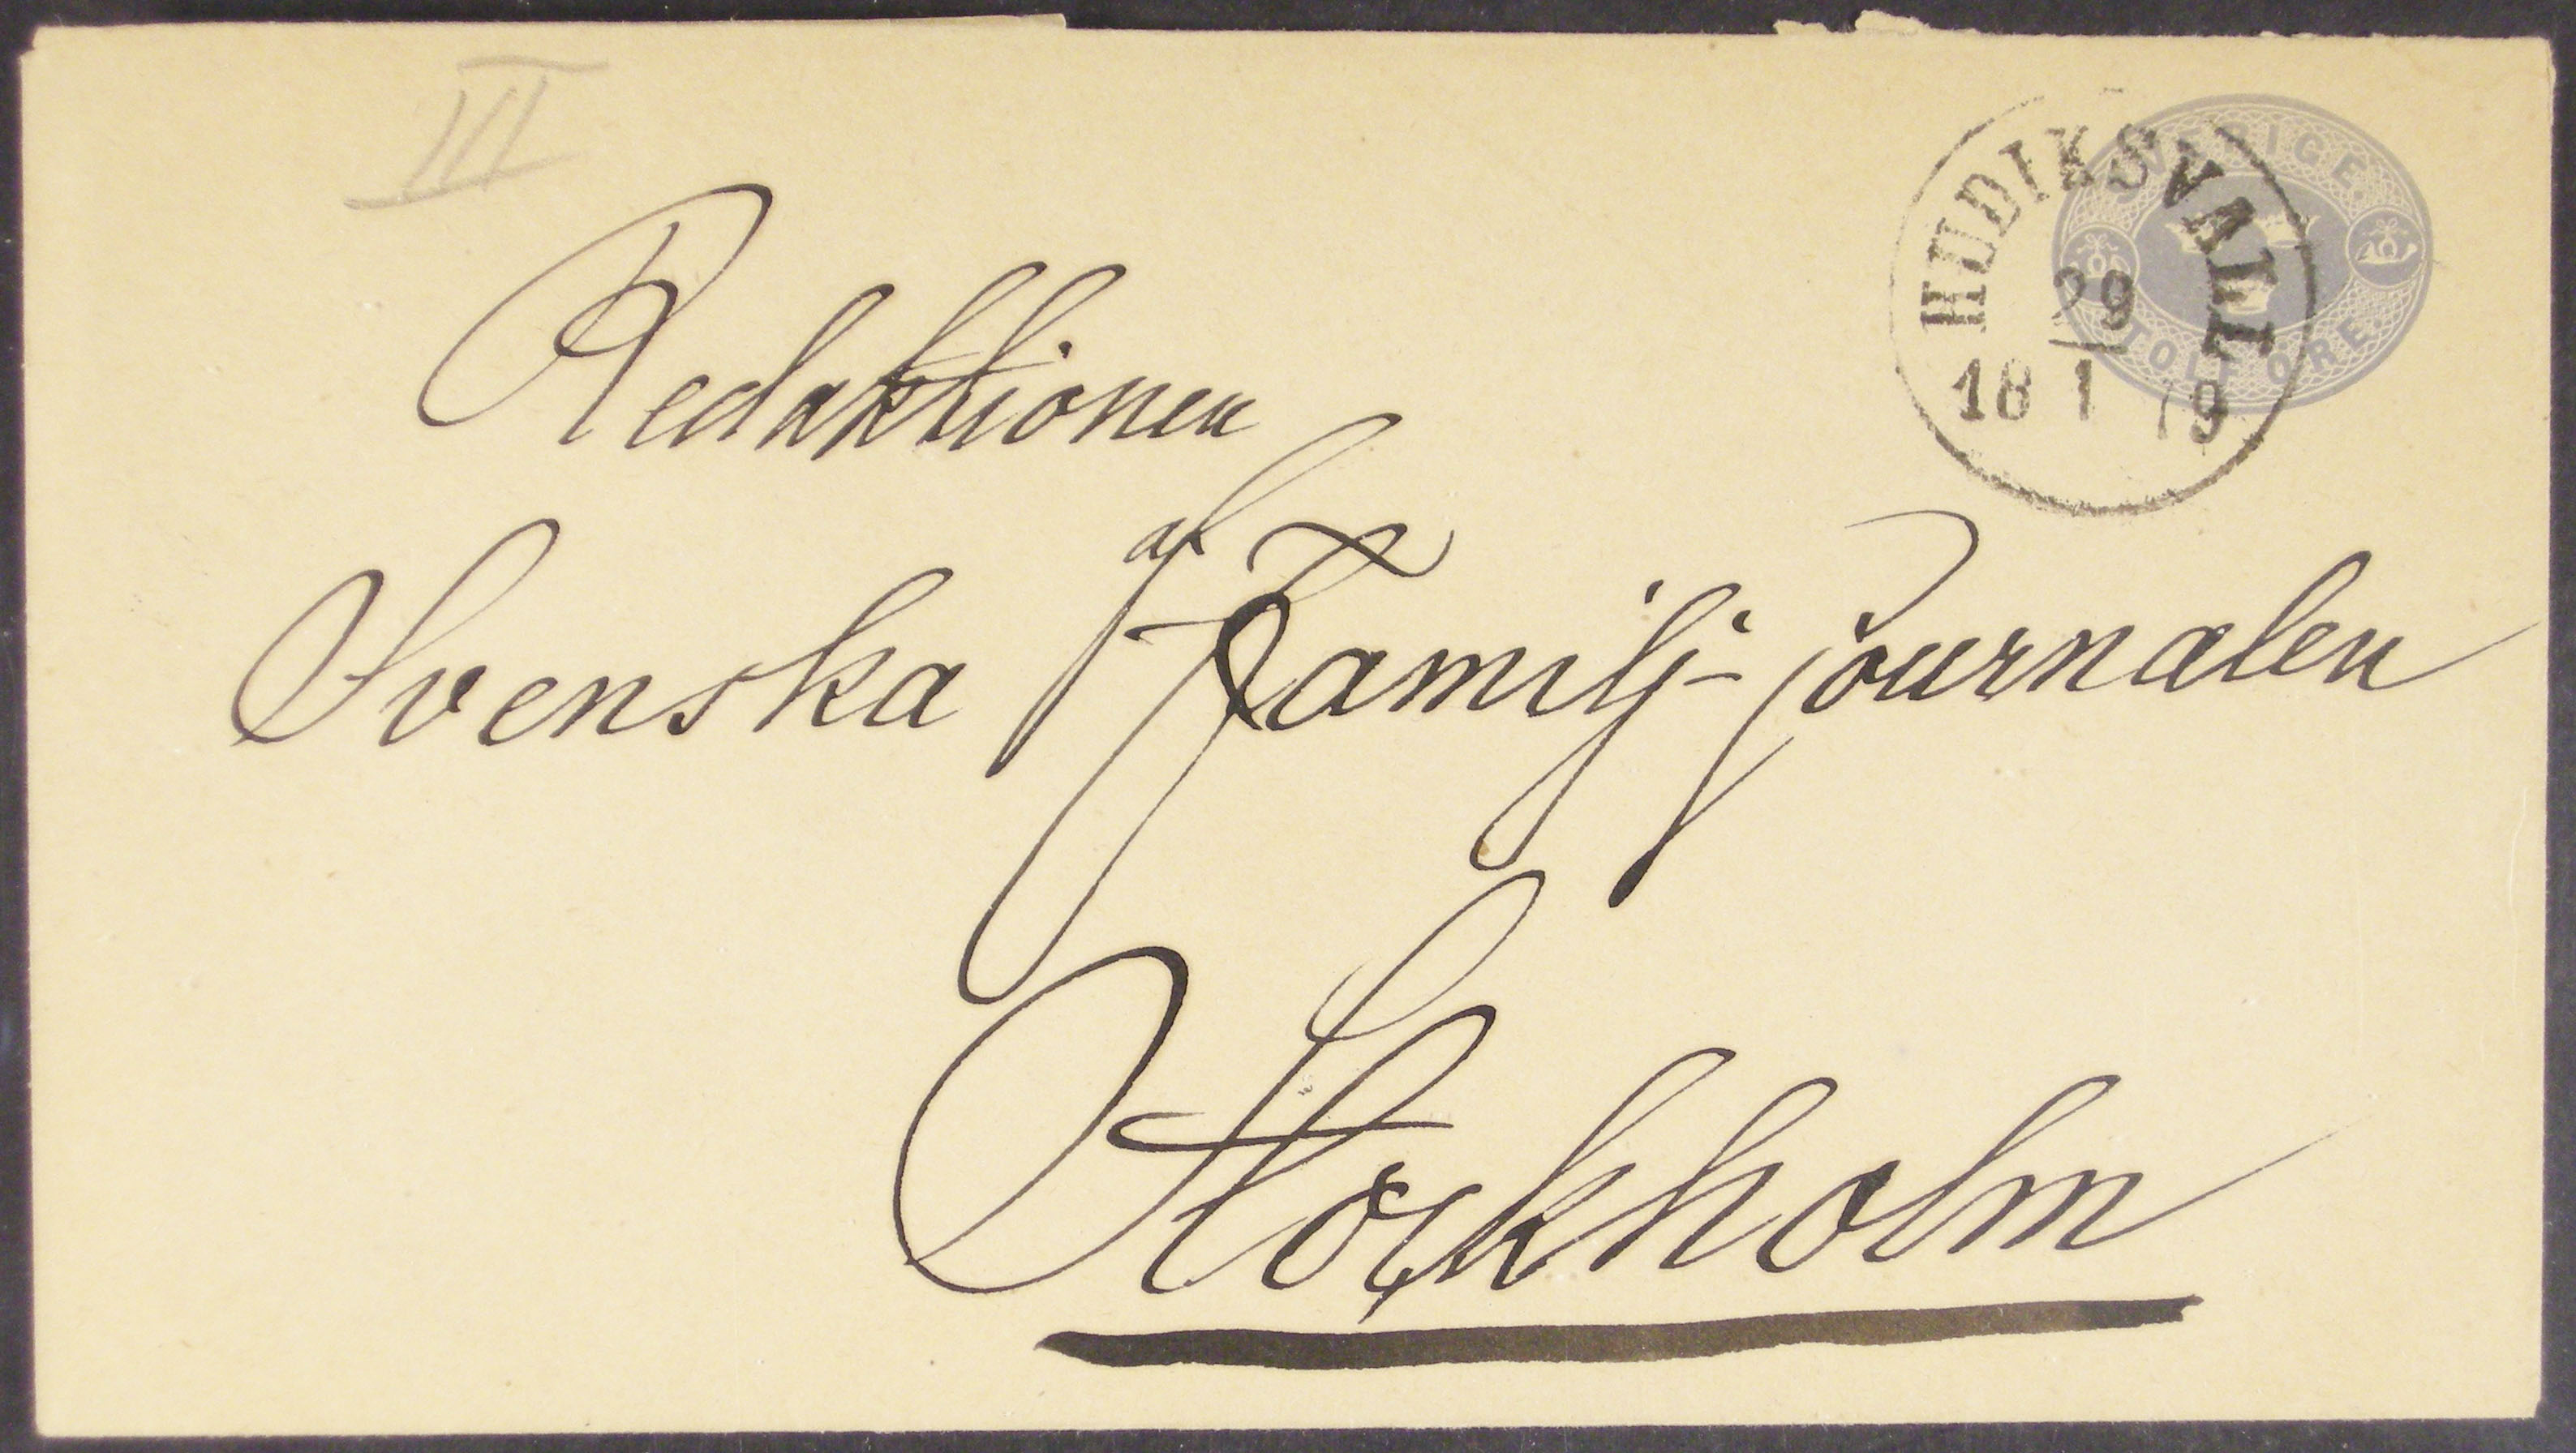 III
HUDIKSVALL
29
18 1 79
SVERIGE
TOLF ÖRE
Redaktionen
af
Svenska Familj-journalen
Stockholm